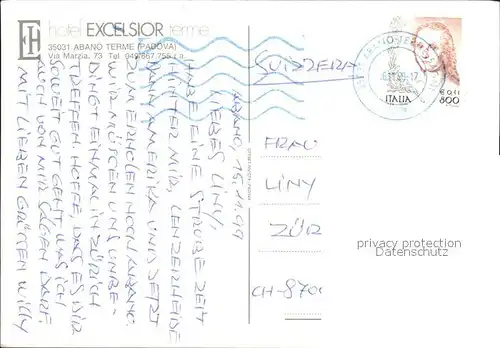 hotel EXCELSIOR terme
35031 ABANO TERME (PADOVA)
Via Marzia, 73 Tel 049/667.755 r.a.
ABANO, 16.11.99
LIEBES LINY,
HABE EINE STRUBE ZEIT
HINTER MIR, LENZERHEIDE
DANN AMERIKA UND JETZT
ZUM ERHOLEN NOCH ABANO.
WIR MÜSSEN UNS UNBE-
DINGT EINMAL IN ZÜRICH
TREFFEN. HOFFE, DAS ES DIR
SOWEIT GUT GEHT WAS ICH
AUCH VON MIR SAGEN DARF.
MIT LIEBEN GRÜSSEN WILLY
SVIZZERA
ITALIA
€ 0,41
800
FRAU
LINY
ZÜR
CH-870
privacy protection
Datenschutz